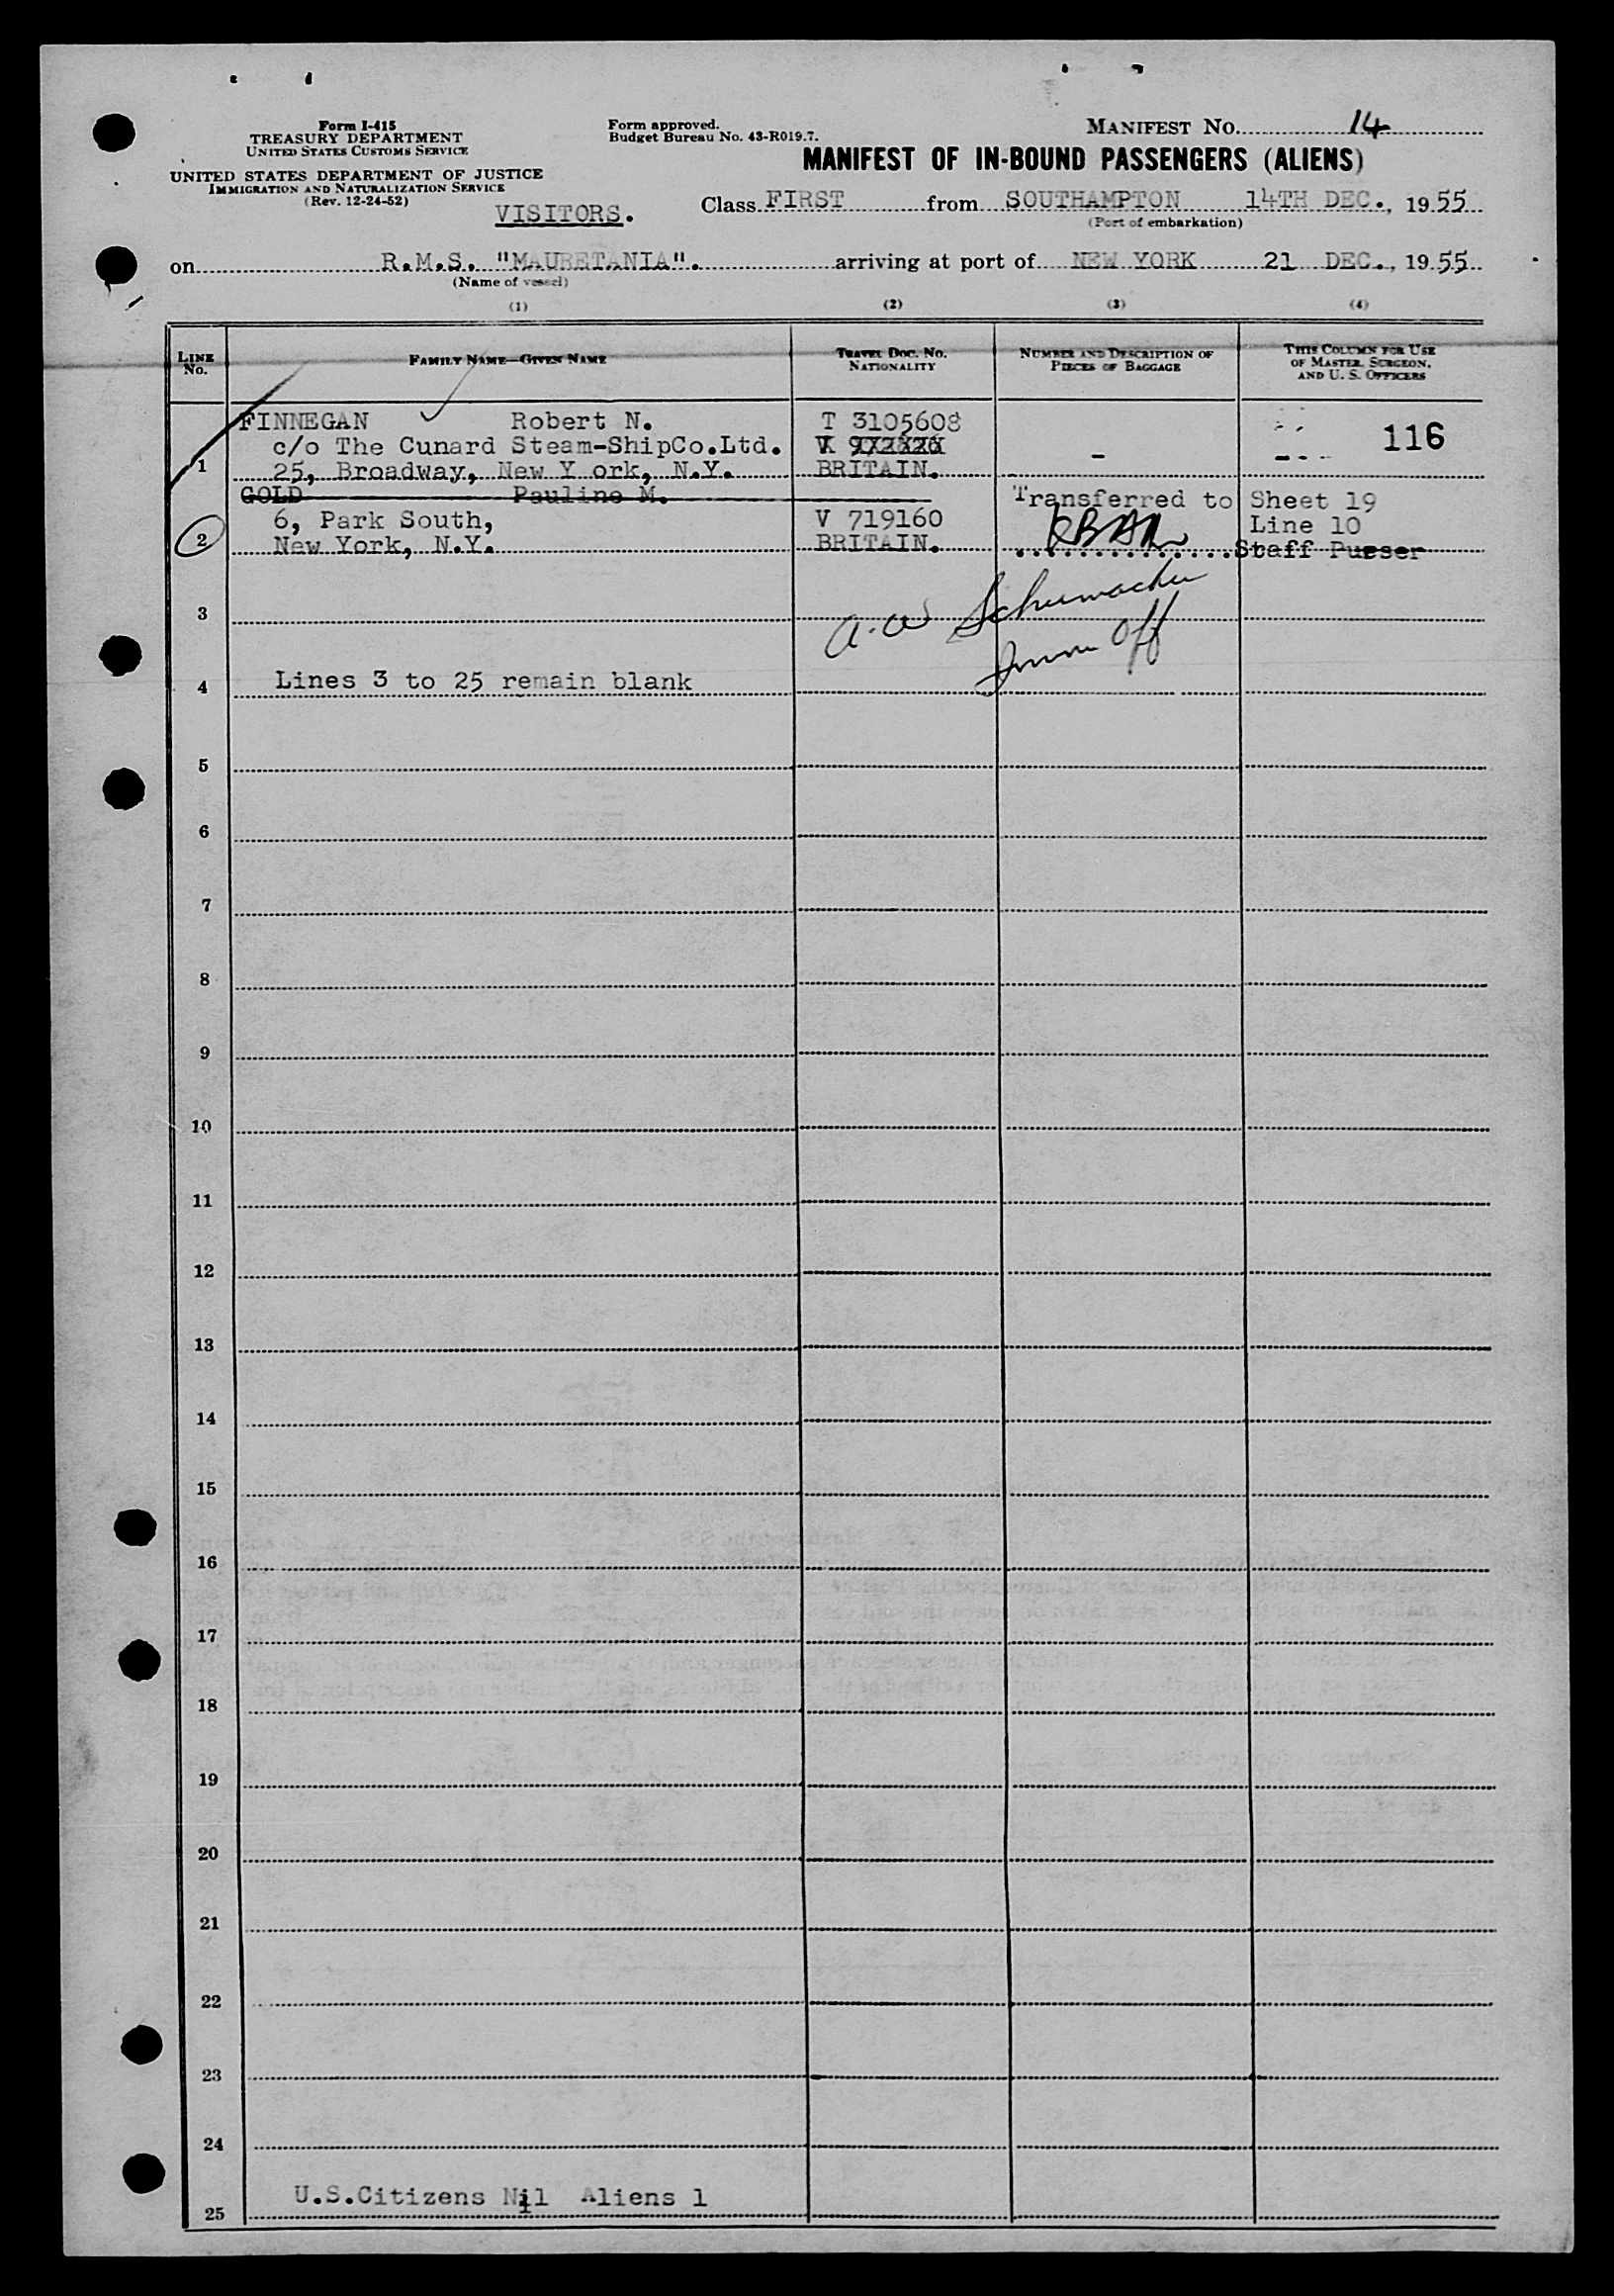 Form I-415
TREASURY DEPARTMENT
UNITED STATES CUSTOMS SERVICE
UNITED STATES DEPARTMENT OF JUSTICE
IMMIGRATION AND NATURALIZATION SERVICE
(Rev. 12-24-52)
Form approved.
Budget Bureau No. 43-R019.7.
MANIFEST NO. 14
MANIFEST OF IN-BOUND PASSENGERS (ALIENS)
VISITORS.
Class FIRST from SOUTHAMPTON 14TH DEC., 1955
(Port of embarkation)
on R.M.S. "MAURETANIA". arriving at port of NEW YORK 21 DEC., 1955
(Name of vessel)
(1) (2) (3) (4)
LINE NO.
FAMILY NAME—GIVEN NAME
TRAVEL DOC. NO.
NATIONALITY
NUMBER AND DESCRIPTION OF
PIECES OF BAGGAGE
THIS COLUMN FOR USE
OF MASTER, SURGEON,
AND U. S. OFFICERS
FINNEGAN Robert N. T 3105608
c/o The Cunard Steam-ShipCo.Ltd. 116
1 25, Broadway, New Y ork, N.Y. BRITAIN. -
GOLD Pauline M. Transferred to Sheet 19
6, Park South, V 719160 Line 10
2 New York, N.Y. BRITAIN. ..............Staff Purser
3 A. W Schumacher
Imm Off
4 Lines 3 to 25 remain blank
5
6
7
8
9
10
11
12
13
14
15
16
17
18
19
20
21
22
23
24
25 U.S.Citizens Nil Aliens 1